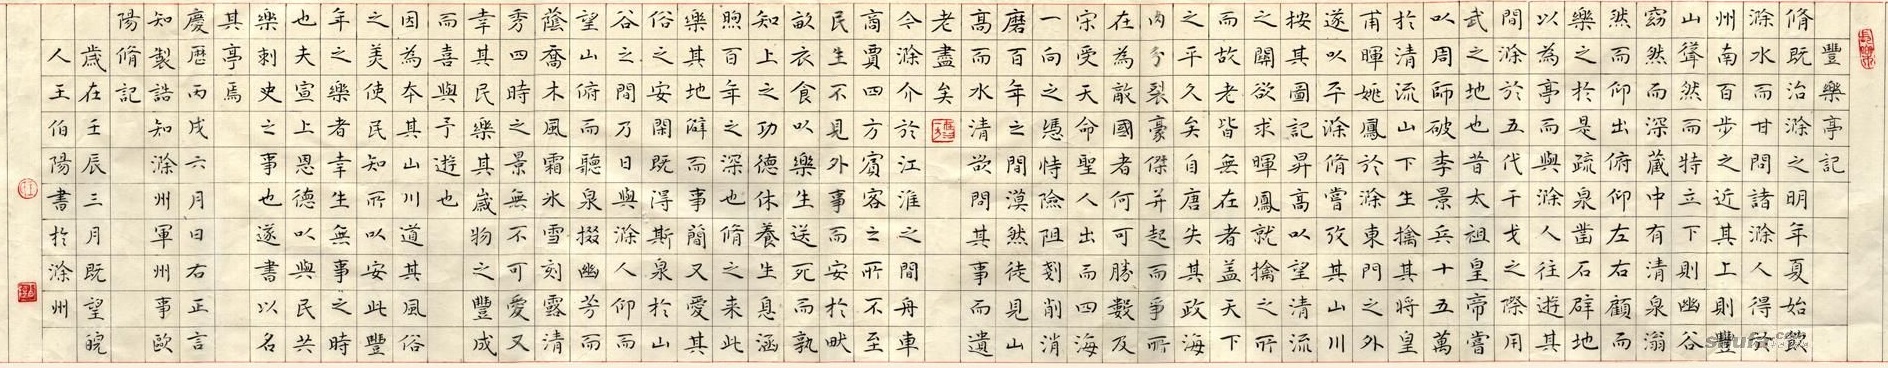 豐樂亭記
脩既治滁之明年夏始飲
滁水而甘問諸滁人得於
州南百步之近其上則豐
山聳然而特立下則幽谷
窈然而深藏中有清泉滃
然而仰出俯仰左右顧而
樂之於是疏泉鑿石辟地
以為亭而與滁人往遊其
間滁於五代干戈之際用
武之地也昔太祖皇帝嘗
以周師破李景兵十五萬
於清流山下生擒其將皇
甫暉姚鳳於滁東門之外
遂以平滁脩嘗攷其山川
按其圖記昇高以望清流
之關欲求暉鳳就擒之所
而故老皆無在者蓋天下
之平久矣自唐失其政海
内分裂豪傑并起而爭所
在為敵國者何可勝數及
宋受天命聖人出而四海
一向之憑恃險阻剗削消
磨百年之間漠然徒見山
高而水清欲問其事而遺
老盡矣
今滁介於江淮之間舟車
商賈四方賓客之所不至
民生不見外事而安於畎
畝衣食以樂生送死而孰
知上之功德休養生息涵
煦百年之深也脩之來此
樂其地僻而事簡又愛其
俗之安閑既得斯泉於山
谷之間乃日與滁人仰而
望山俯而聽泉掇幽芳而
蔭喬木風霜氷雪刻露清
秀四時之景無不可愛又
幸其民樂其歲物之豐成
而喜與予遊也
因為本其山川道其風俗
之美使民知所以安此豐
年之樂者幸生無事之時
也夫宣上恩德以與民共
樂刺史之事也遂書以名
其亭焉
慶曆丙戌六月日右正言
知製誥知滁州軍州事歐
陽脩記
歲在壬辰三月既望皖
人王伯陽書於滁州